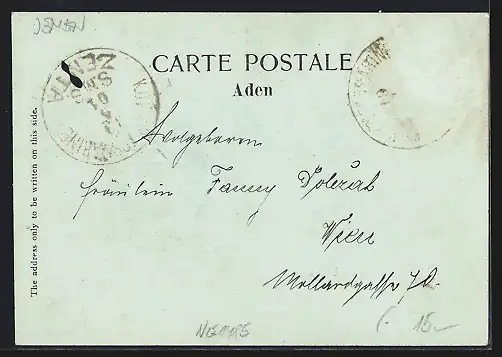 JEMEN
CARTE POSTALE
Aden
The address only to be written on this side.
ZENTA
S.M.S.
Wolgeboren
Fräulein Fanny Dolezal
Wien
Mollardgasse 70.
15-